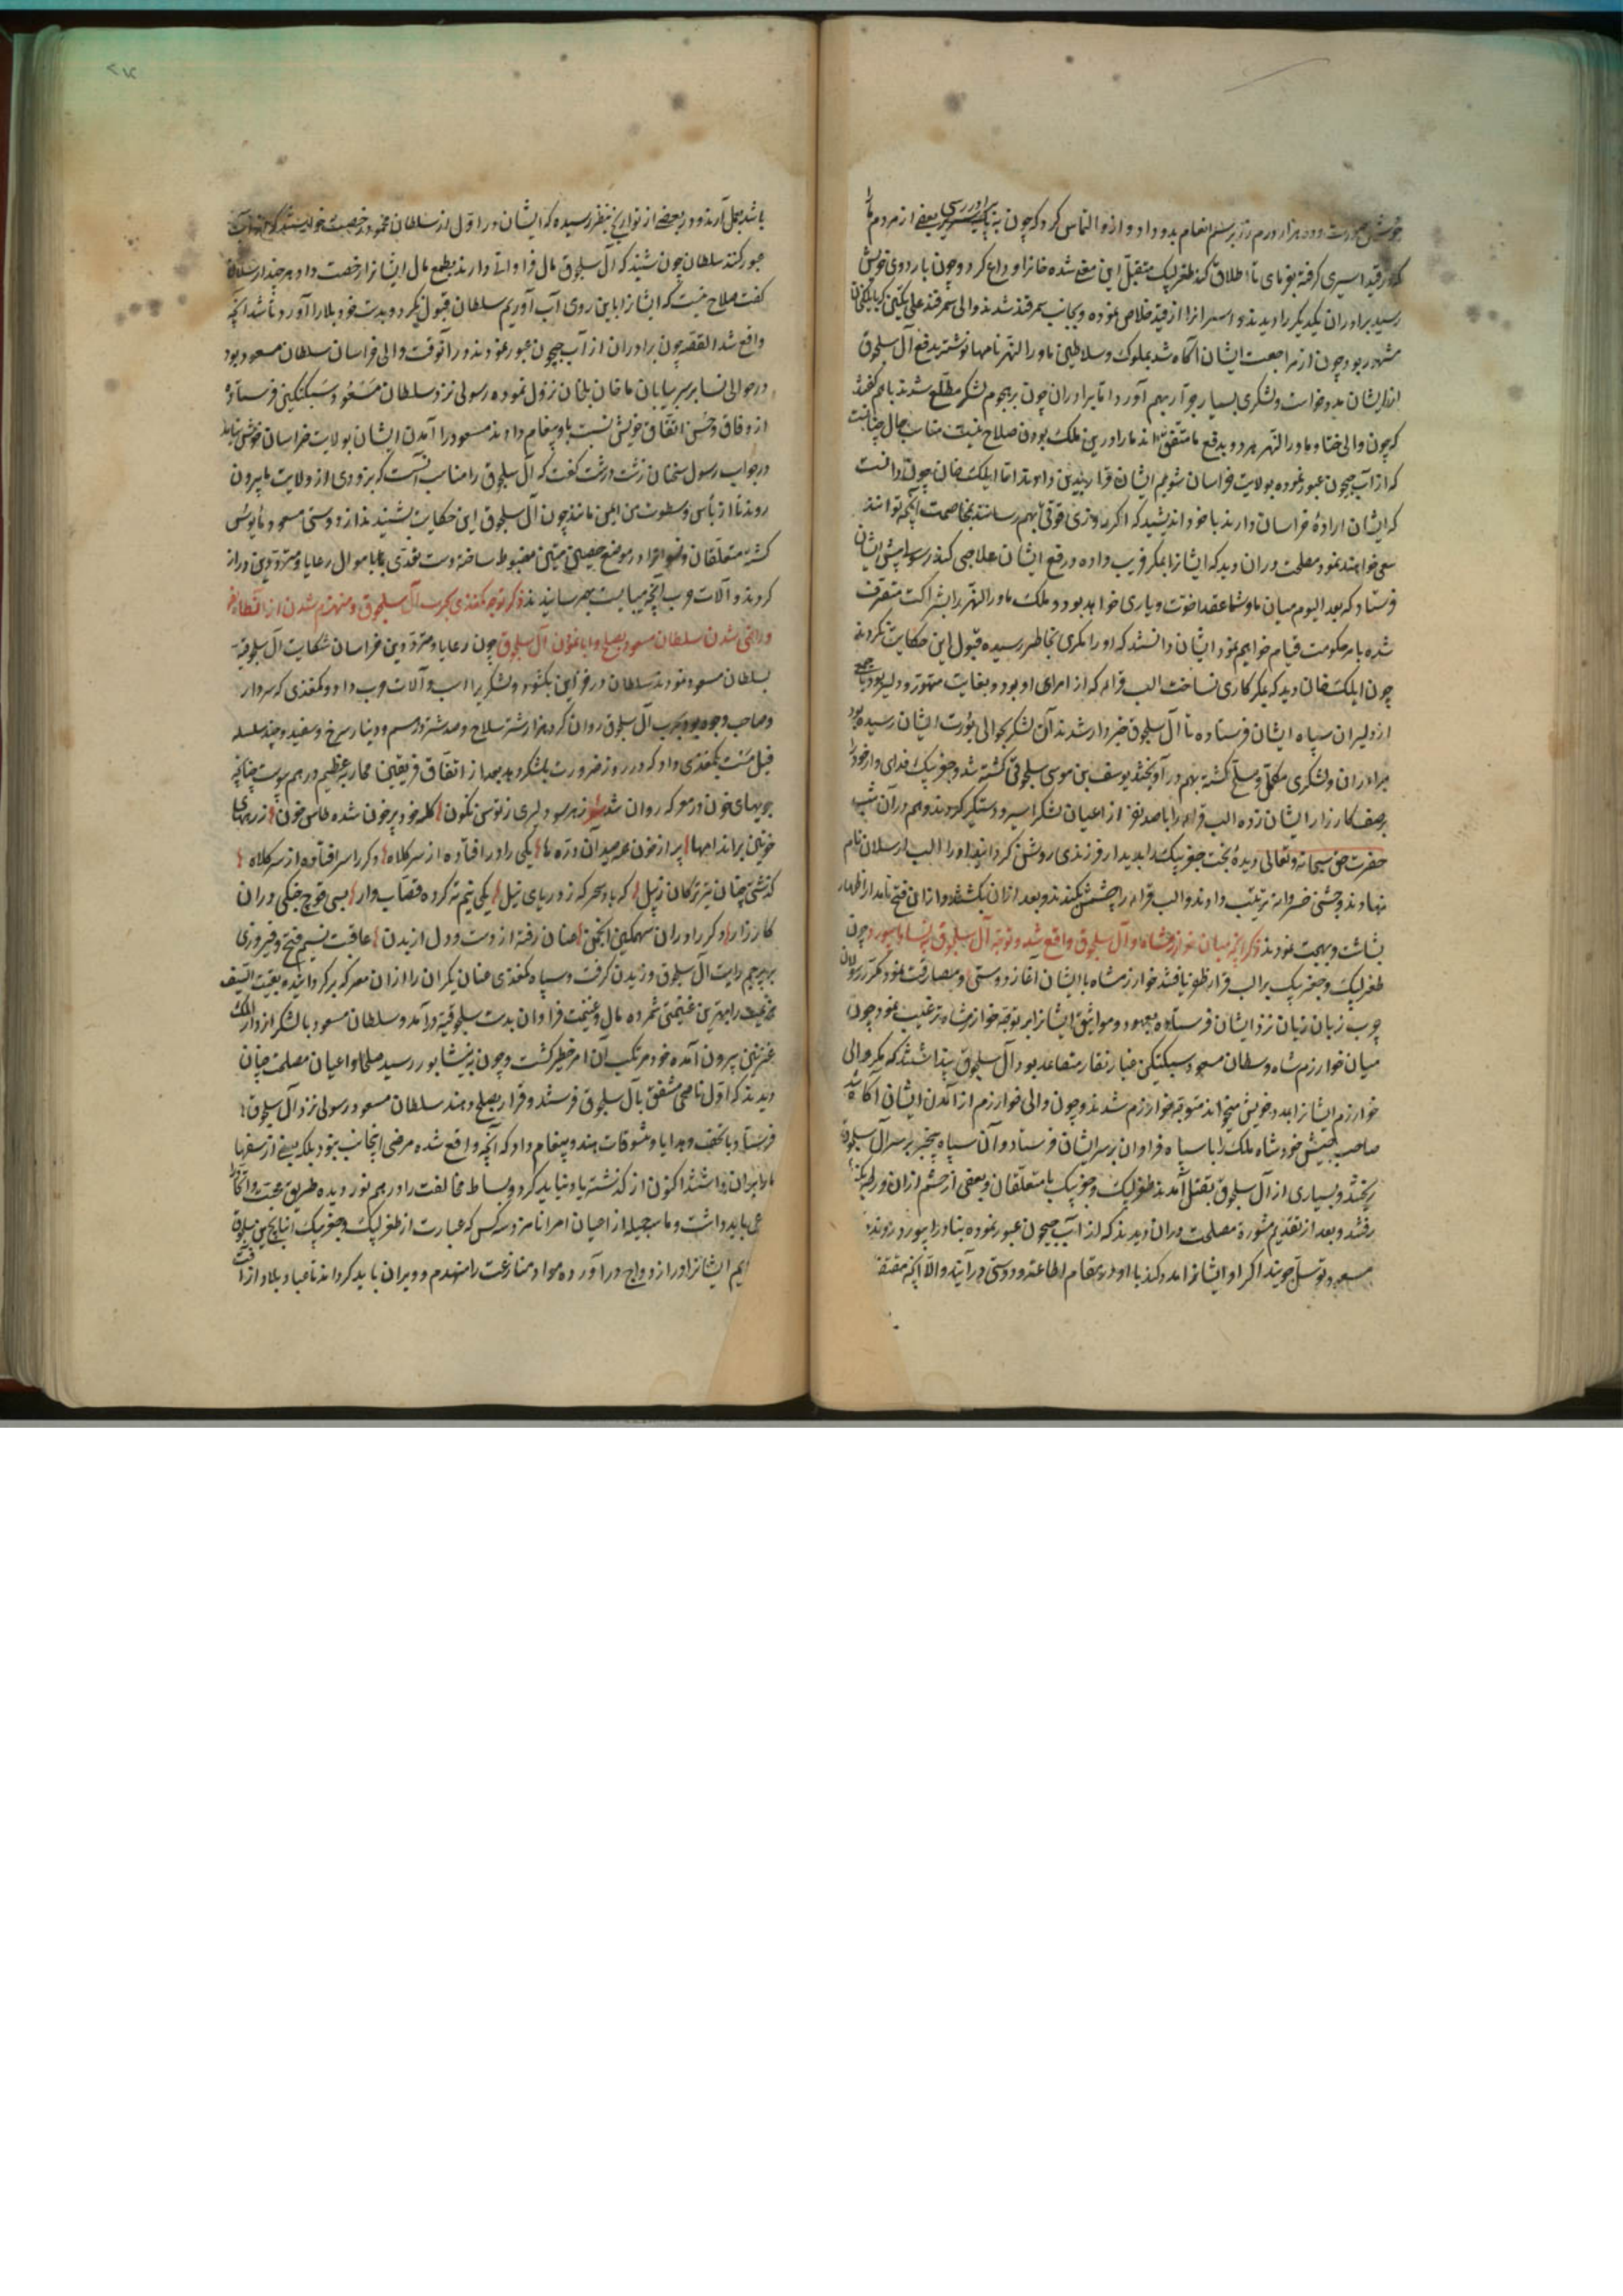 خوش صورت و ده هزار درم زر برسم انعام بدو داد و ازو التماس کرد که چون به برادر رسی بعضی از مردم ما را
که در قید اسیری گرفته بفرمای تا اطلاق کنند طغرلبیک متقبل این معنی شده خانرا وداع کرد و چون باردوی خویش
رسید برادران یکدیگر را دیدند و اسیرانرا از قید خلاص نموده و بجانب سمرقند شدند والی سمرقند علی تکین که بایلکخان
مشهور بود چون از مراجعت ایشان آگاه شد بملوک و سلاطین ماوراالنهر نامها نوشته بدفع آل سلجوق
ازیشان مدد خواست و لشکری بسیار جرار بهم آورد اما برادران چون بر هجوم لشکر مطلع شدند باهم گفتند
که چون والی ختا و ماوراالنهر هر دو بدفع ما متفق اند ما را درین ملک بودن صلاح نیست مناسب حال چنانست
که از آب جیحون عبور نموده بولایت خراسان شویم ایشان قرار بدین دادند اما ایلکخان چون دانست
که ایشان ارادهٔ خراسان دارند با خود اندیشید که اگر روزی قوتی بهم رسانند بخاصمت آنچه توانند
سعی خواهند نمود مصلحت دران دید که ایشانرا بمکر فریب داده در رفع ایشان علاجی کند رسولی پیش ایشان
فرستاد که بعد الیوم میان ما و شما عقد اخوت و یاری خواهد بود و ملک ماوراالنهر را بشراکت متصرف
شده بامر حکومت قیام خواهیم نمود ایشان دانستند که او را مکری بخاطر رسیده قبول این حکایت نکردند
چون ایلکخان دید که مکر کاری نساخت الب قرا را که از امرای او بود و بغایت متهور و دلیر بود با جمعی
از دلیران سپاه ایشان فرستاده تا آل سلجوق خبردار شدند آن لشکر بحوالی یورت ایشان رسیده بود
برادران و لشکری مکمل و مسلح گشته بهم درآویختند یوسف بن موسی سلجوقی کشته شد و جغربیک فدای وار خود را
بر صف کارزار ایشان زده الب قرا را با صد نفر از اعیان لشکر اسیر و دستگیر کردند و هم دران شب
حضرت حق سبحانه و تعالی دیدهٔ بخت جغربیک را بدیدار فرزندی روشن گردانید او را الب ارسلان نام
نهادند و جشنی خسروانه ترتیب دادند و الب قرا را چشمش بکندند و بعد ازان بکشتند و ازین فتح نامدار اظهار
بشاشت و بهجت نمودند ذکر آنچه میان خوارزمشاه و آل سلجوق واقع شد و توجه آل سلجوق بنسا و ابیورد چون
طغرلبیک و جغربیک بر الب قرا ظفر یافتند خوارزمشاه با ایشان آغاز دوستی و مصادقت نمود مکرر رسولان
چرب زبان نزد ایشان فرستاده بعهود و مواثیق ایشانرا بر توجه خوارزمشاه ترغیب نمود چون
میان خوارزم شاه و سلطان مسعود سبکتکین غبار نقار متصاعد بود آل سلجوق پنداشتند که مگر والی
خوارزم ایشانرا بمدد خویش میخواند متوجه خوارزم شدند و چون والی خوارزم از آمدن ایشان آگاه شد
صاحب جیش خود شاه ملک را با سپاه فراوان بر سر ایشان فرستاد و آن سپاه بیخبر بر سر آل سلجوق
ریختند و بسیاری از آل سلجوق بقتل آمدند طغرلبیک و جغربیک با متعلقان و بعضی از حشم ازان ورطه
رفتند و بعد از تقدیم مشوره مصلحت دران دیدند که از آب جیحون عبور نموده بنسا و ابیورد روند و
مسعود توسل جویند اگر او ایشانرا مدد کند با او در مقام اطاعت و دوستی درآیند والا آنچه مقتضی
باشد بعمل آرند و در بعضی از تواریخ بنظر رسیده که ایشان در اول از سلطان محمود رخصت خواستند که از آب
عبور کنند سلطان چون شنید که آل سلجوق مال فراوانی دارند بطمع مال ایشانرا رخصت داد هر چند ارسلان
گفت صلاح نیست که ایشانرا باین روی آب آوریم سلطان قبول نکرد و بدست خود بلا را آورد تا شد آنچه
واقع شد القصه چون برادران از آب جیحون عبور نمودند و در آنوقت والی خراسان سلطان مسعود بود
در حوالی نسا بر سر بیابان نزول نموده رسولی نزد سلطان مسعود سبکتکین فرستاده
از وفاق و حسن اتفاق خویش نسبت باو پیغام دادند مسعود را آمدن ایشان بولایت خراسان خوش نیامد
در جواب رسول سخنان زشت و درشت گفت که آل سلجوق را مناسب آنست که بزودی از ولایت ما بیرون
روند تا از بأس و سطوت من ایمن مانند چون آل سلجوق این حکایت بشنیدند از دوستی مسعود مأیوس
گشته متعلقان و در موضع حصین متین مضبوط ساخته دست تعدی باموال رعایا و مترددین دراز
کردند و آلات حرب آنچه میبایست بهم رسانیدند ذکر توجه بکغدی بحرب آل سلجوق و منهزم شدن ازان
و راضی شدن سلطان مسعود بصلح و ابا نمودن آل سلجوق چون رعایا و مترددین خراسان شکایت آل سلجوق
بسلطان مسعود نمودند سلطان در خزاین بگشود و لشکر را اسب و آلات حرب داد و بکغدی که سردار
و صاحب وجود بود بحرب آل سلجوق روان کرد هزار شتر سلاح و صد شتر درم و دینار سرخ و سفید و چند سلسله
فیل مست بکغدی داد که در روز ضرورت بلشکر دهد بعد از اتفاق فریقین محاربه عظیم در هم پیوست چنانچه
جویهای خون در معرکه روان شد شعر ز هر سو دلیری ز توسن نگون کله خود پر خون شده طاس خون ز زره‌های
خونین بر اندامها پر از خون میدان یکی را در افتاده از سر کلاه دگر را سر افتاده از سر کلاه
گذشتی چنان تیر ترکان ز پیل که باد سحرگه ز دریای نیل یکی نیم ته کرده قصاب وار بسی قوچ جنگی دران
کارزار دگر را دران سهمگین انجمن عنان رفته از دست و دل از بدن عاقبت نسیم فتح و فیروزی
بر پرچم رایت آل سلجوق وزیدن گرفت و سپاه بکغدی عنان یکران را ازان معرکه برگردانیده بقیة السیف
غنیمتی شمرده مال و غنیمت فراوان بدست سلجوقیه درآمد و سلطان مسعود با لشکر از دارالملک
غزنین بیرون آمده خود مرتکب آن امر خطیر گشت و چون به نیشابور رسید صلحا و اعیان مصلحت چنان
دیدند که اول ناصحی مشفق بآل سلجوق فرستند و قرار بصلح دهند سلطان مسعود رسولی نزد آل سلجوق
فرستاد با تحف و هدایا و پیغام داد که آنچه واقع شده مرضی اینجانب نبود بلکه بعضی از سفها
ما را بران داشتند اکنون از گذشته یاد نباید کرد و بساط مخالفت را در هم نوردیده طریق محبت و اتحاد
می باید داشت و ما سه جمیله از اعیان امرا نامزد سه کس که عبارت از طغرلبیک و جغربیک
ایم ایشانرا در ازدواج درآورده مواد منازعت را منهدم و ویران باید کرد تا عباد و بلاد از